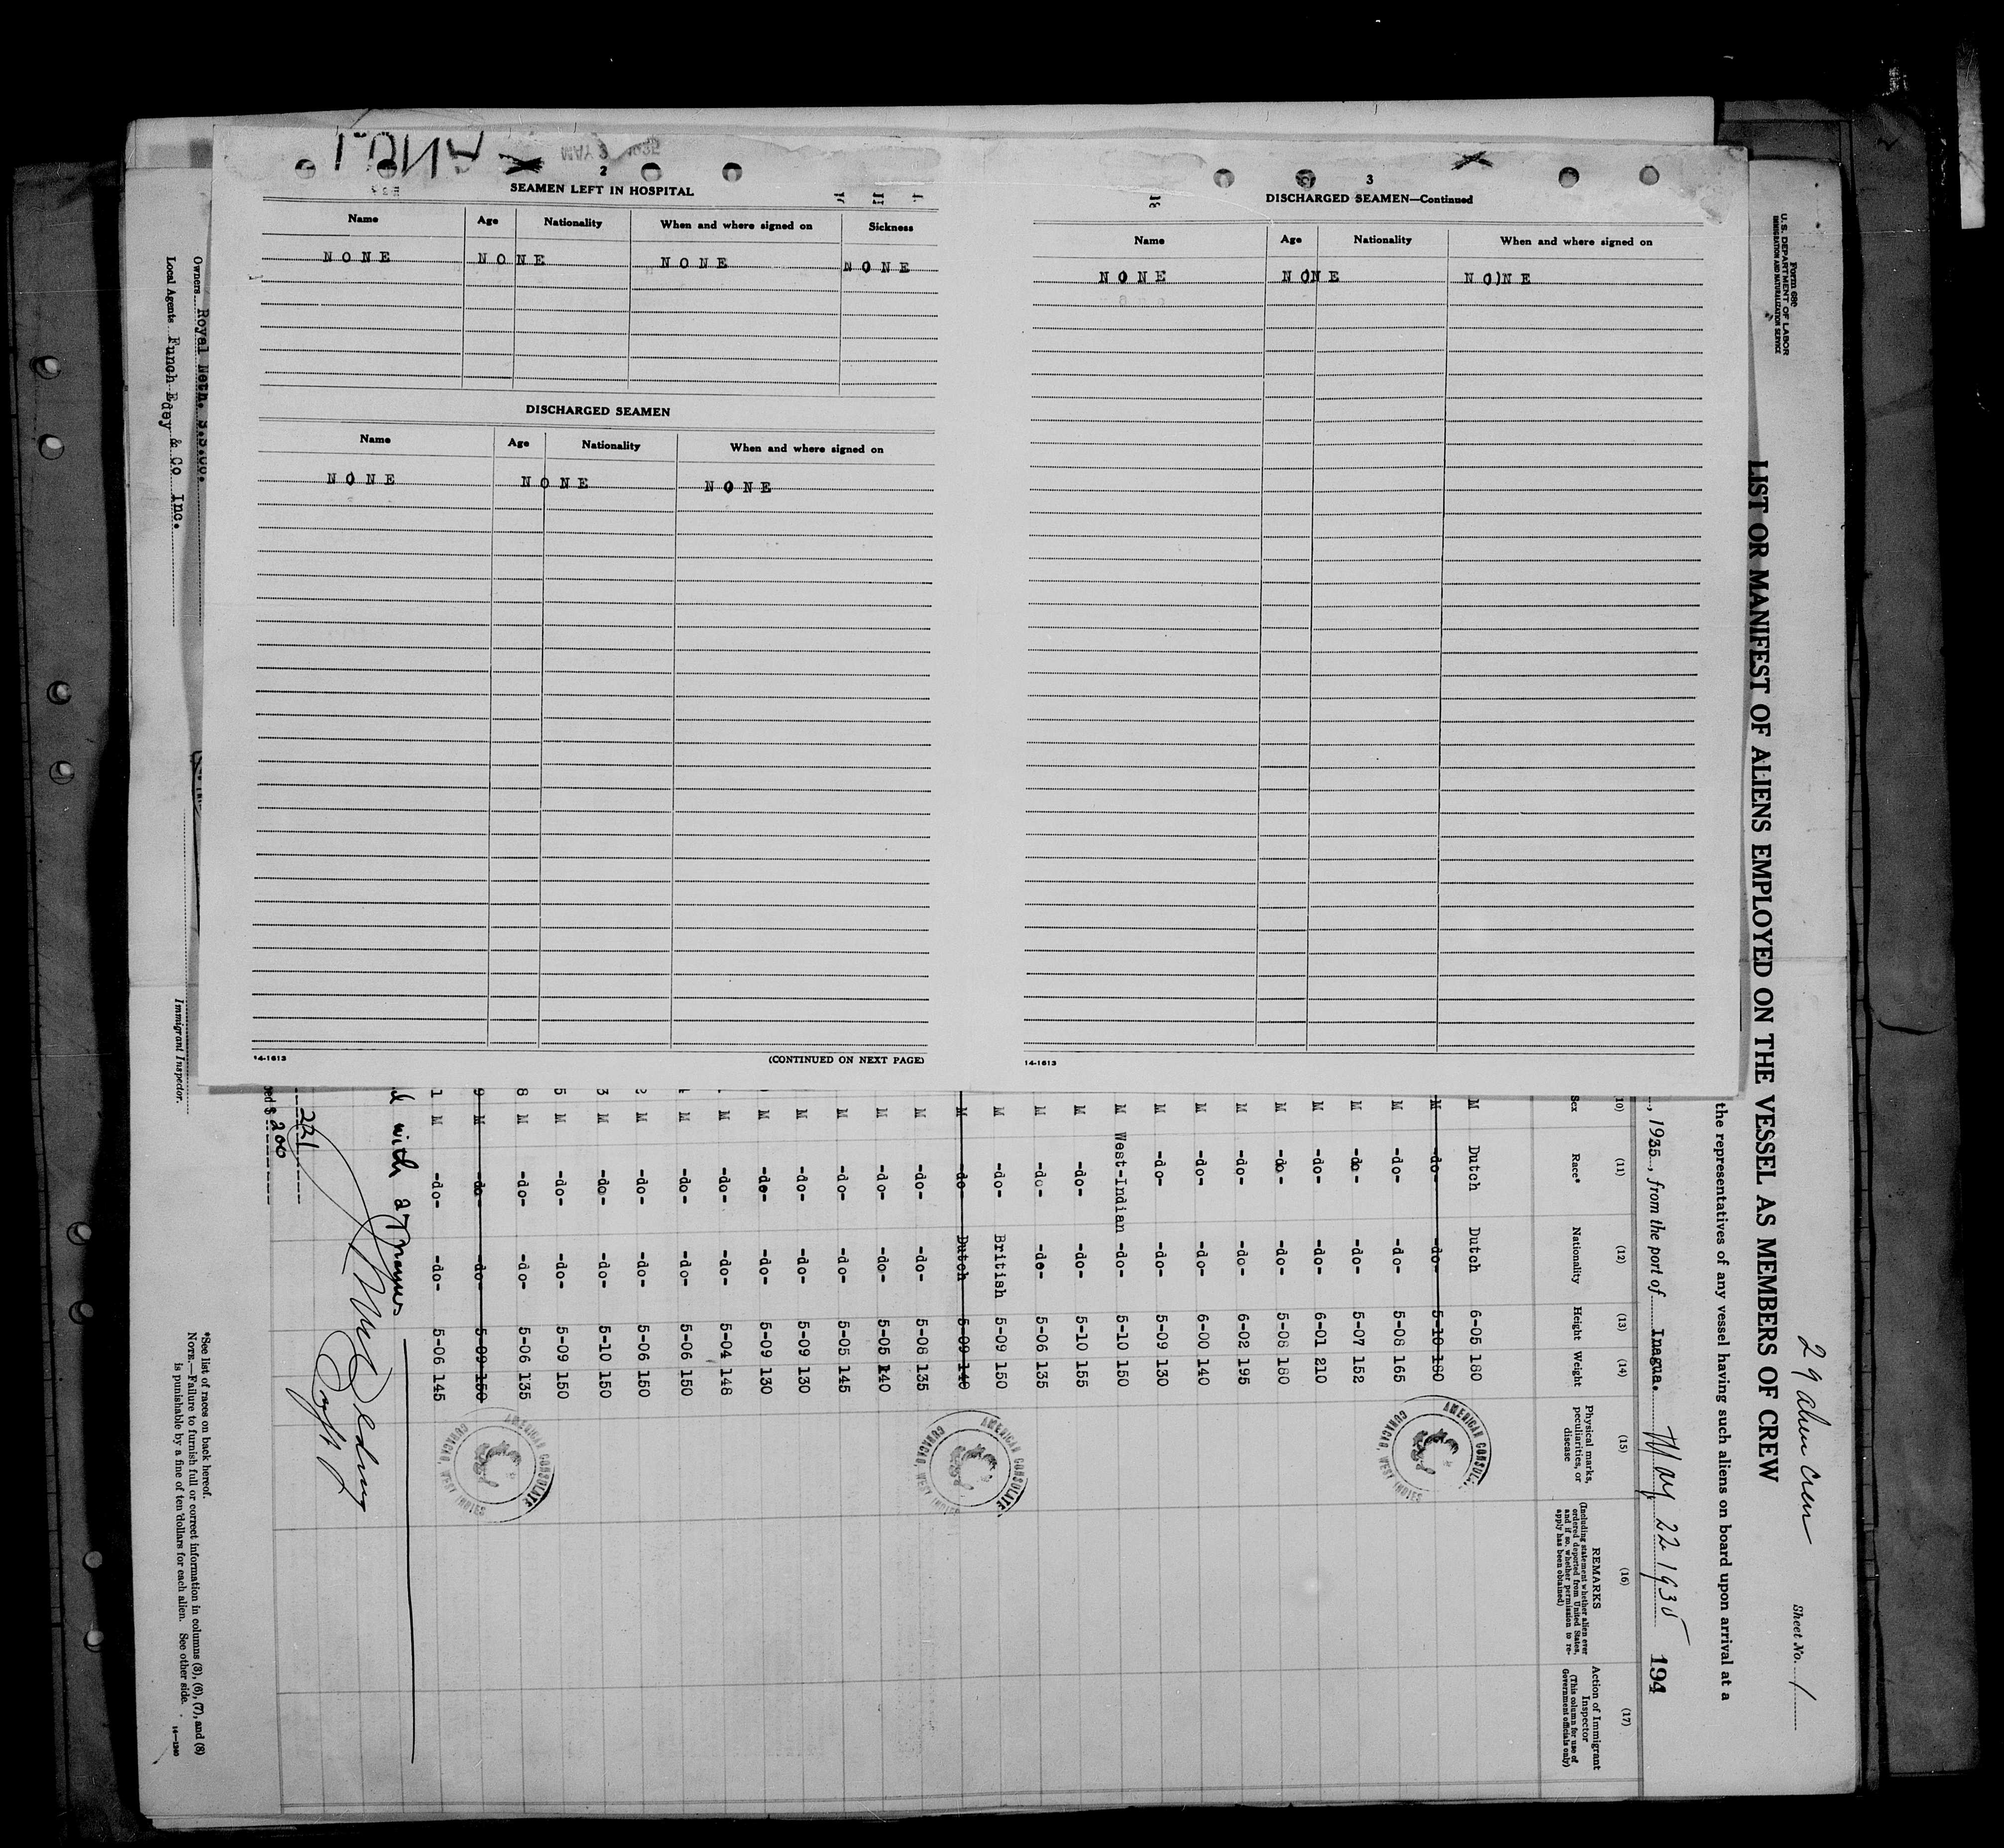 2
SEAMEN LEFT IN HOSPITAL
Name Age Nationality When and where signed on Sickness
NONE NONE NONE NONE
DISCHARGED SEAMEN
Name Age Nationality When and where signed on
NONE NONE NONE
14-1613 (CONTINUED ON NEXT PAGE)
3
DISCHARGED SEAMEN—Continued
Name Age Nationality When and where signed on
NONE NONE NONE
14-1613
Form 680
U. S. DEPARTMENT OF LABOR
IMMIGRATION AND NATURALIZATION SERVICE
29 alien crew
Sheet No. 1
LIST OR MANIFEST OF ALIENS EMPLOYED ON THE VESSEL AS MEMBERS OF CREW
the representatives of any vessel having such aliens on board upon arrival at a
, 1935, from the port of Inagua. May 22 1935 194
(10) (11) (12) (13) (14) (15) (16) (17)
Sex Race* Nationality Height Weight Physical marks, peculiarities, or disease REMARKS (Including statement whether alien ever ordered deported from United States, and if so, whether permission to reapply has been obtained) Action of Immigrant Inspector (This column for use of Government officials only)
M Dutch Dutch 6-05 180
M -do- -do- 5-10 180
M -do- -do- 5-08 165
M -do- -do- 5-07 152
M -do- -do- 6-01 210
M -do- -do- 5-08 180
M -do- -do- 6-02 195
M -do- -do- 6-00 140
M -do- -do- 5-09 130
M West-Indian -do- 5-10 150
M -do- -do- 5-10 155
M -do- -do- 5-06 135
M -do- British 5-09 150
M -do- Dutch 5-09 140
M -do- -do- 5-08 135
M -do- -do- 5-05 140
M -do- -do- 5-05 145
M -do- -do- 5-09 130
M -do- -do- 5-09 130
M -do- -do- 5-04 148
M -do- -do- 5-06 150
2 M -do- -do- 5-06 150
3 M -do- -do- 5-10 150
5 M -do- -do- 5-09 150
8 M -do- -do- 5-06 135
9 M -do- -do- 5-09 150
1 M -do- -do- 5-06 145
AMERICAN CONSULATE
CURACAO, WEST INDIES
AMERICAN CONSULATE
CURACAO, WEST INDIES
AMERICAN CONSULATE
CURACAO, WEST INDIES
with 27 names
221
$ 200
Owners Royal Neth. S.S.Co.
Local Agents Funch Edey & Co Inc.
Immigrant Inspector.
*See list of races on back hereof.
NOTE.—Failure to furnish full or correct information in columns (3), (6), (7), and (8)
is punishable by a fine of ten dollars for each alien. See other side.
14—1240